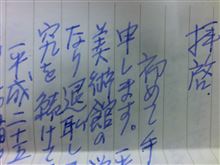 拝啓
初めて手
申します。
美術館の
なり退職し
究を続けて
平成二十五